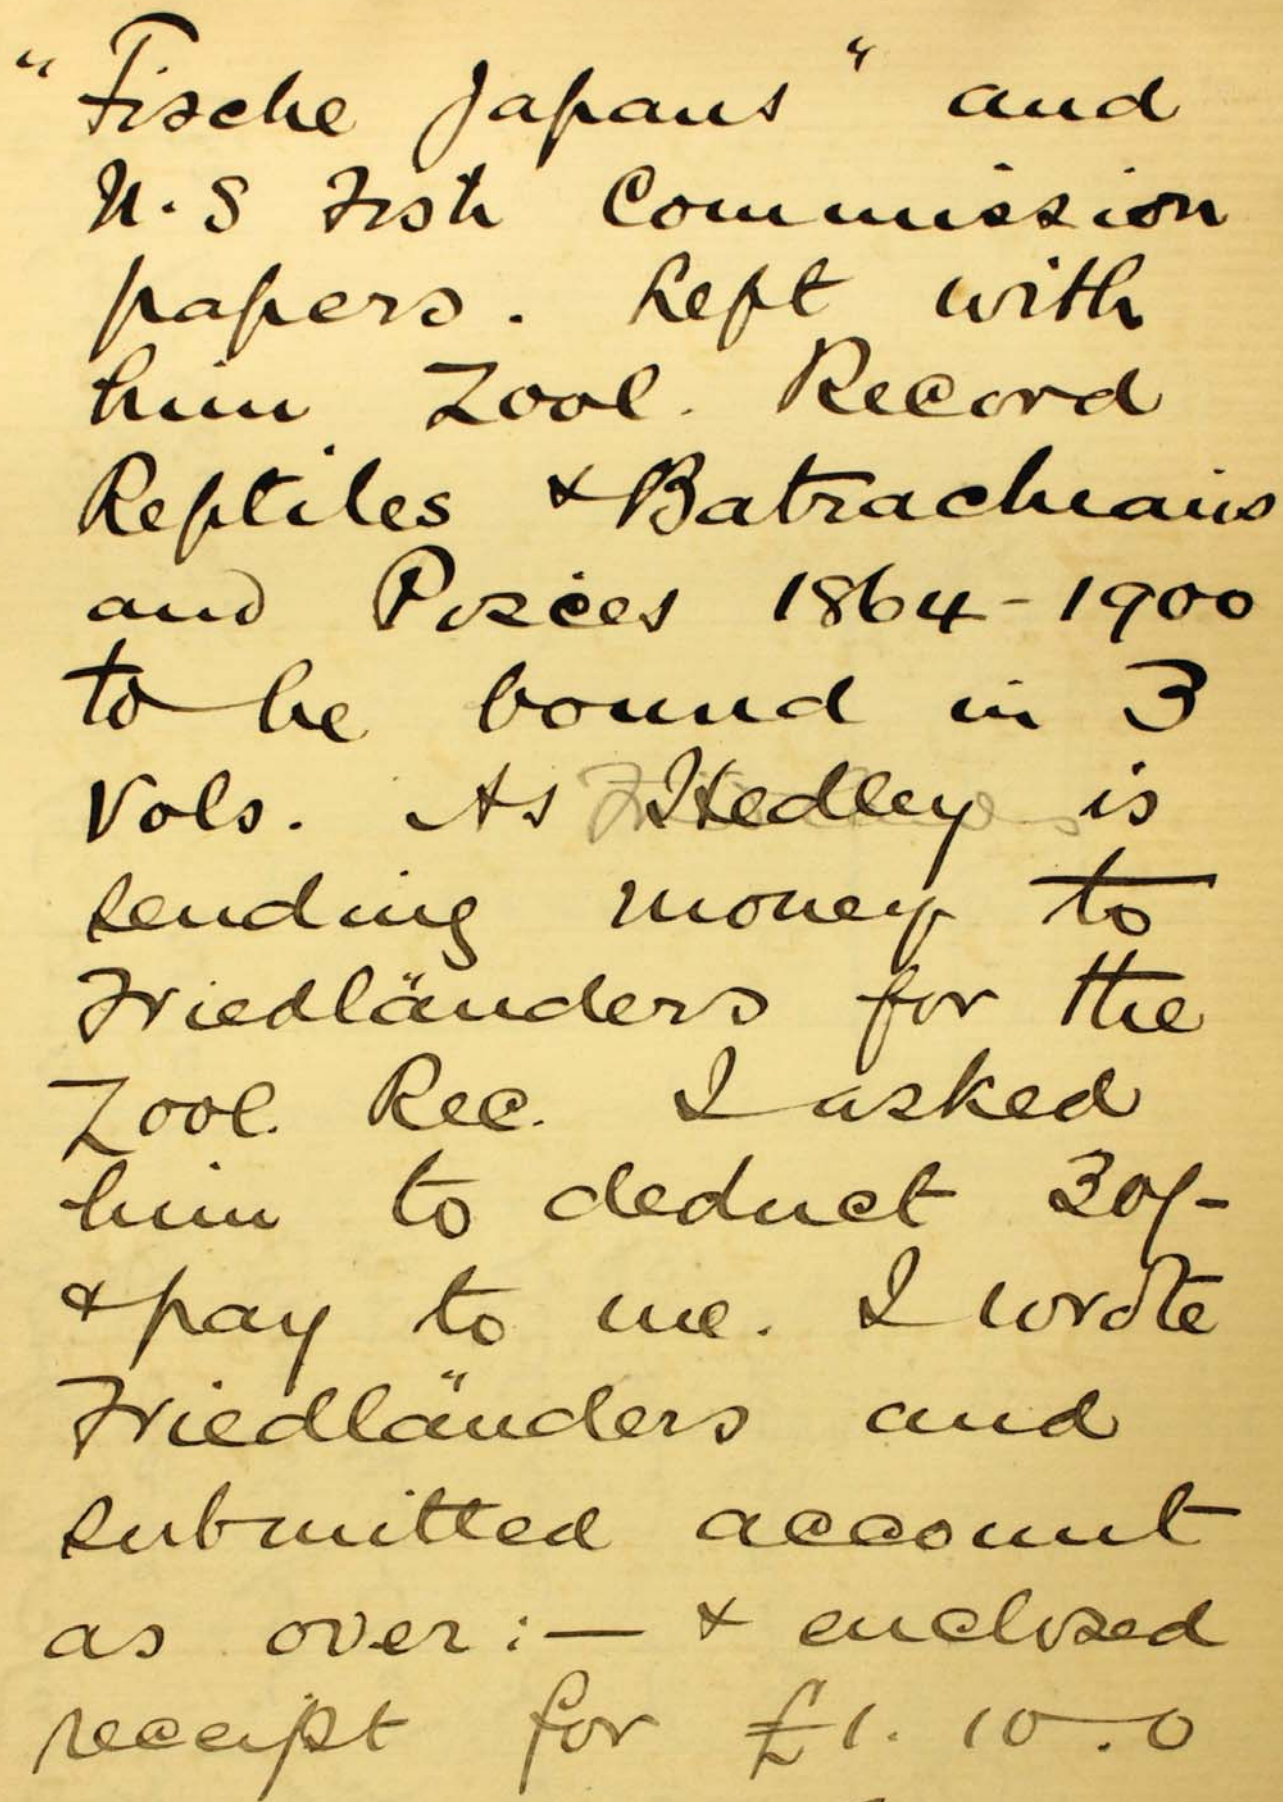 "Fische Japans" and
U.S Fish Commission
papers. Left with
him Zool. Record
Reptiles & Batrachians
and Pisces 1864-1900
to be bound in 3
Vols. As Hedley is
sending money to
Friedländers for the
Zool. Rec. I asked
him to deduct 30/-
& pay to me. I wrote
Friedländers and
submitted account
as over:— & enclosed
receipt for £1.10.0